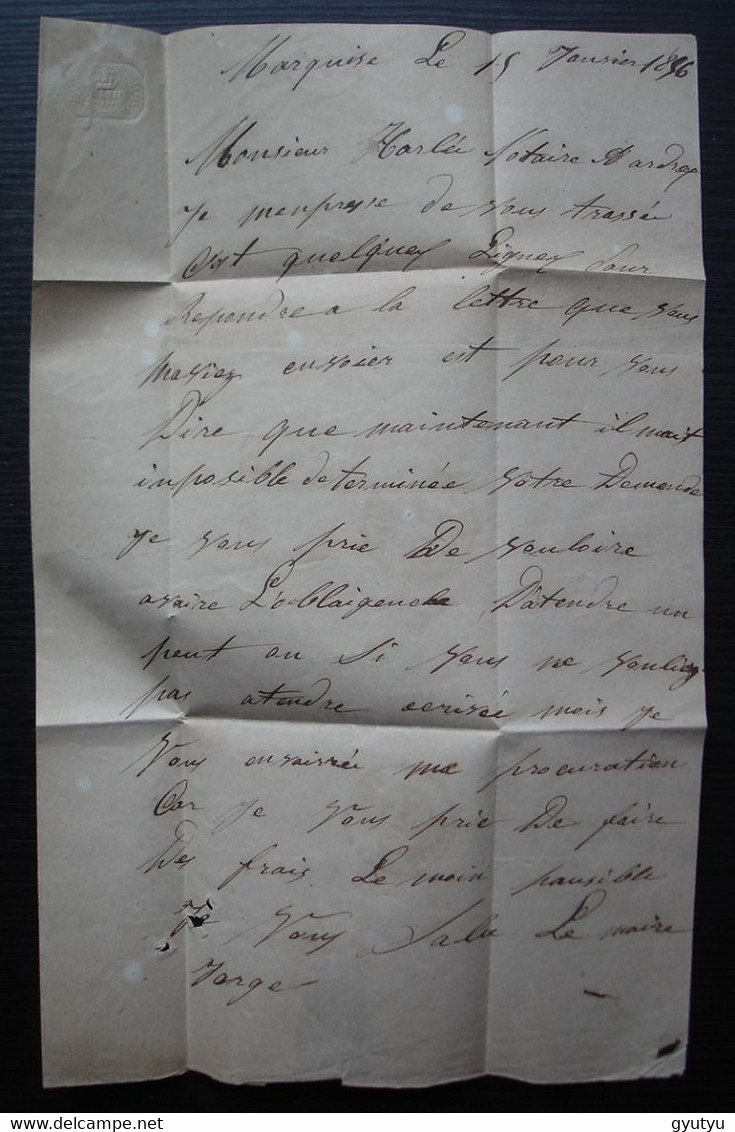 Marquise Le 15 Janvier 1856
Monsieur Harlé Notaire A ardres
je menpresse de vous trassée
C'est quelques Lignes Pour
Repondre a la lettre que vous
maviez envoier est pour vous
Dire que maintenant il mait
inposible determinée votre Demende
je vous prie De vouloire
avaire L'oblaigence D'atendre un
peut ou Si vous ne vouliez
pas atendre ecrivée mois je
Vous envairrée ma procuration
Car je vous prie De faire
Des frais Le moin pausible
Je Vous Salue Le maire
gyutyu